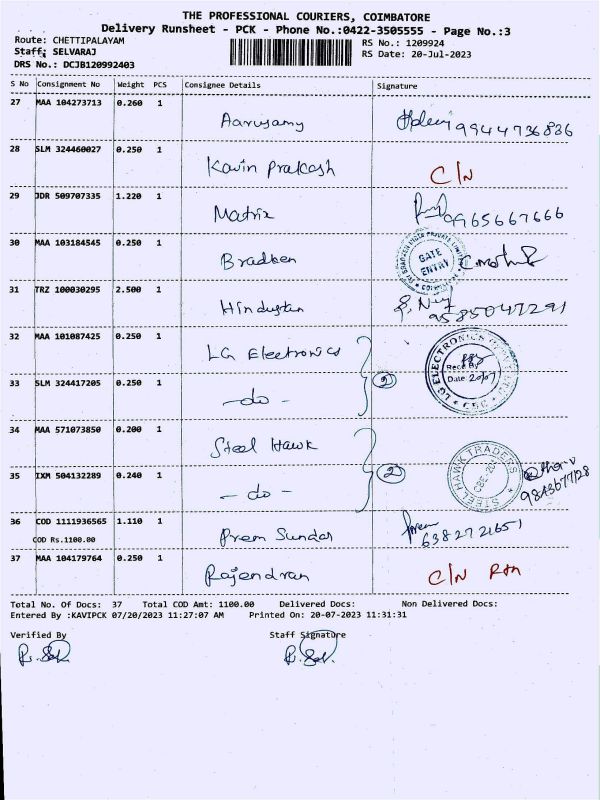 THE PROFESSIONAL COURIERS, COIMBATORE
Delivery Runsheet - PCK - Phone No.:0422-3505555 - Page No.:3
Route: CHETTIPALAYAM RS No.: 1209924
Staff: SELVARAJ RS Date: 20-Jul-2023
DRS No.: DCJB120992403
S No Consignment No Weight PCS Consignee Details Signature
27 MAA 104273713 0.260 1
Aarusamy 9944736836
28 SLM 324460027 0.250 1
Kavin Prakash C/N
29 JDR 509707335 1.220 1
Matrix 9965667666
30 MAA 103184545 0.250 1
Bradken GATE ENTRY
31 TRZ 100030295 2.500 1
Hindustan 9585047291
32 MAA 101087425 0.250 1
LG Electronics LG ELECTRONICS
33 SLM 324417205 0.250 1 2 Recd By
Date: 20/07
- do - CSC
34 MAA 571073850 0.200 1
Steel Hawk STEEL HAWK TRADERS
35 IXM 504132289 0.240 1 2 CBE-20
- do - 9843677128
36 COD 1111936565 1.110 1
COD Rs.1100.00 Prem Sundar Prem 6382721651
37 MAA 104179764 0.250 1
Rajendran C/N
Total No. Of Docs: 37 Total COD Amt: 1100.00 Delivered Docs: Non Delivered Docs:
Entered By :KAVIPCK 07/20/2023 11:27:07 AM Printed On: 20-07-2023 11:31:31
Verified By Staff Signature